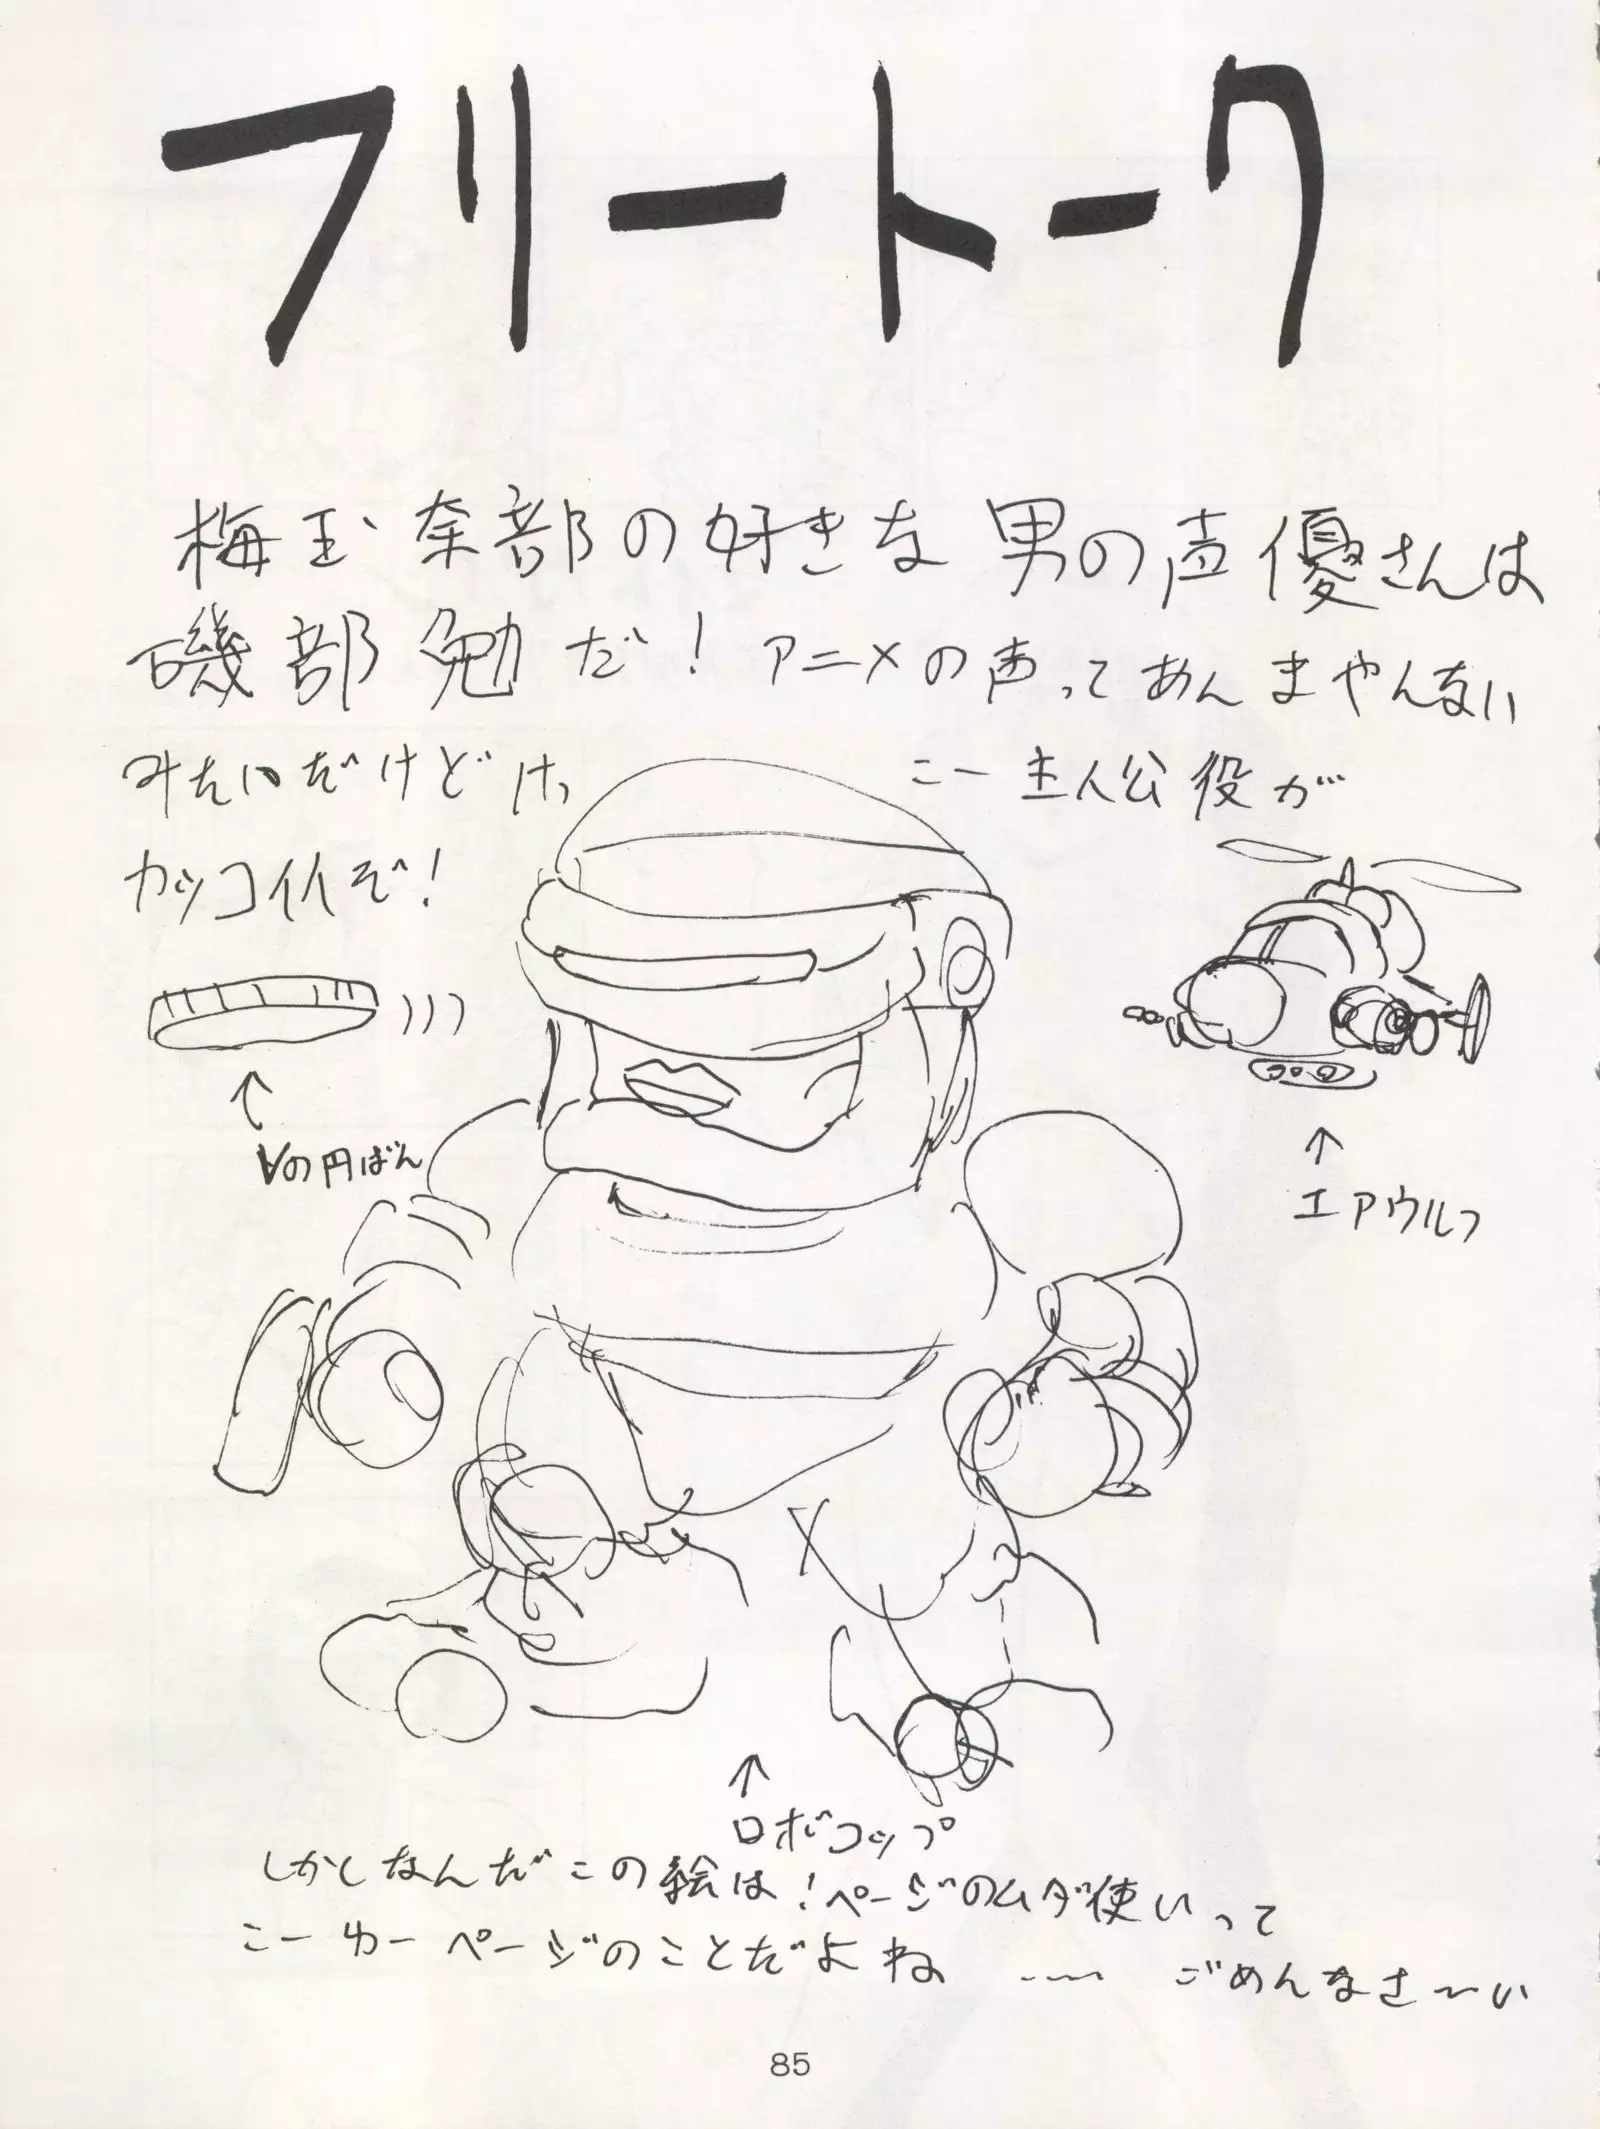 フリートーク
梅玉奈部の好きな男の声優さんは
磯部勉だ!アニメの声ってあんまやんない
みたいだけどけっこー主人公役が
カッコイイぞ!
Vの円ばん
エアウルフ
ロボコップ
しかしなんだこの絵は!ページのムダ使いって
こーゆーページのことだよね ---- ごめんなさ〜い
85